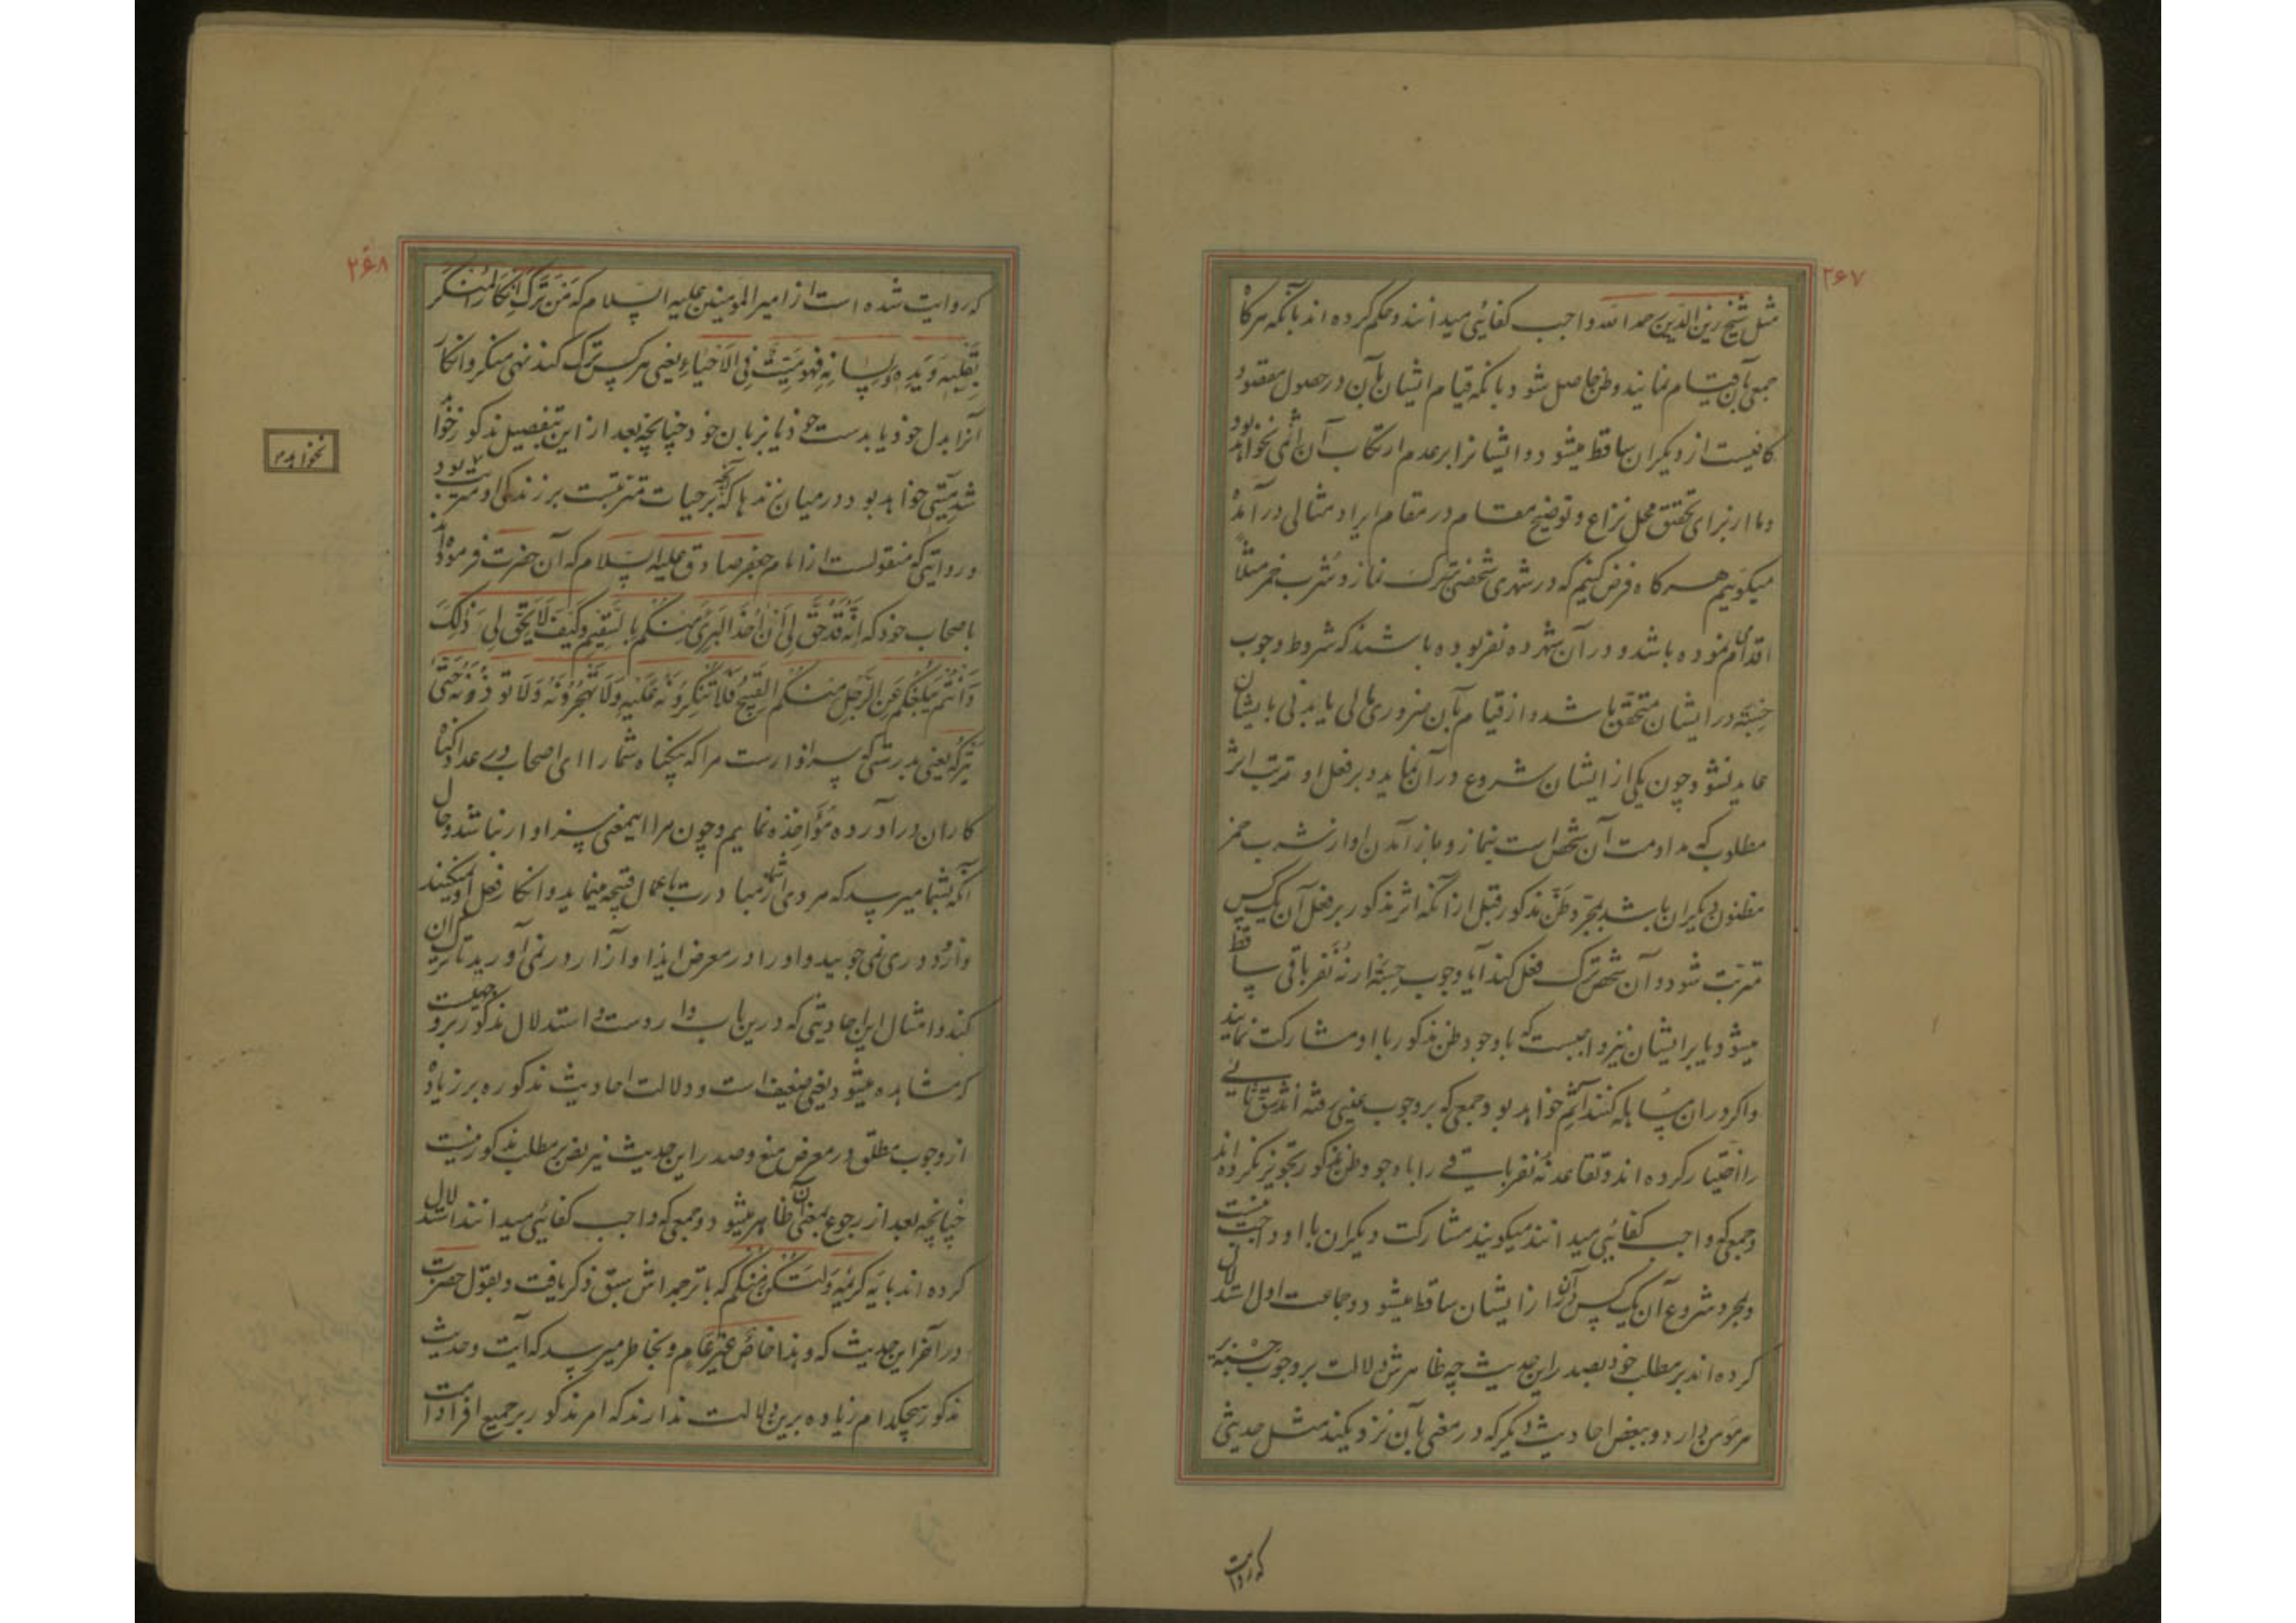 ۲۶۷
مثل شیخ زین الدین رحمه الله واجب کفائی میدانند و حکم کرده اند بآنکه هرکاه
جمعی بآن قیام نمایند و ظن حاصل شود بانکه قیام ایشان بآن در حصول مقصود
کافیست از دیکران ساقط میشود و ایشانرا بر عدم ارتکاب آن اثمی نخواهد بود
و ما از برای تحقیق محل نزاع و توضیح مقام در مقام ایراد مثالی در آمده
میکوییم هرکاه فرض کنیم که در شهری شخصی بترک نماز و شرب خمر مثلاً
اقدام نموده باشد و در آن شهر ده نفر بوده باشند که شروط وجوب
حسبة در ایشان متحقق باشد و از قیام بآن ضروری مالی یا بدنی بایشان
عاید نشود چون یکی از ایشان شروع در آن نماید و بر فعل او ترتب اثر
مطلوب که مداومت آن شخص است بنماز و باز آمدن او از شرب خمر
مظنون دیکران باشد بمجرد ظن مذکور قبل از آنکه اثر مذکور بر فعل آن یک کس
مترتب شود و آن شخص ترک فعل کند آیا وجوب حسبة از نُه نفر باقی ساقط
میشود یا بر ایشان نیز واجبست که با وجود ظن مذکور با او مشارکت نمایند
و اکر در ان مساهله کنند آثم خواهند بود جمعی که بر وجوب عینی رفته اند شق ثانی
را اختیار کرده اند و تقاعد نُه نفر باقی را با وجود ظن مذکور تجویز نکرده اند
و جمعی که واجب کفائی میدانند میکویند مشارکت دیکران با او واجب نیست
و بمجرد شروع آن یک کس در آن از ایشان ساقط میشود و جماعت اول استدلال
کرده اند بر مطلب خود بصدر این حدیث چه ظاهرش دلالت بر وجوب حسبة بر
هر مؤمن دارد و ببعض احادیث دیکر که در معنی بآن نزدیکند مثل حدیثی
که روایت
۲۶۸
که روایت شده است از امیر المؤمنین علیه السلام که مَن تَرَکَ اِنکارَ المُنکَر
بِقَلبِه وَ یَدِه وَ لِسانِه فَهُوَ مَیِّتٌ فِی الاَحیاءِ یعنی هر کس ترک کند نهی منکر و انکار
آنرا بدل خود یا بدست خود یا بزبان خود چنانچه بعد ازین بتفصیل مذکور خواهد
شد میتی خواهد بود در میان زندها که آنچه بر حیات مترتبست بر زندگی او مترتب نبود
و روایتی که منقولست از امام جعفر صادق علیه السلام که آن حضرت فرموده اند
باصحاب خود که اِنَّهُ قَد حَقَّ لی اَن اٰخُذَ البَرِیَّ مِنکُم بِالسَّقیمِ وَ کَیفَ لا یَحِقُّ لی ذٰلِکَ
وَ اَنتُم یَبلُغُکُم عَنِ الرَّجُلِ مِنکُمُ القَبیحُ فَلا تُنکِرونَهُ عَلَیهِ وَ لا تَهجُرونَهُ وَ لا تؤذونَهُ حَتّٰی
یَترُکَهُ یعنی بدرستی که سزاوارست مرا که بیکناه شما را ای اصحاب در عداد کناه
کاران در آورده مؤاخذه نمایم و چون مرا اینمعنی سزاوار نباشد و حال
آنکه بشما میرسد که مردی از شما مبادرت باعمال قبیحه مینماید و انکار فعل او نمیکنید
و ازو دوری نمی جویید و او را در معرض ایذا و آزار در نمی آورید تا ترک ان
کند و امثال این احادیثی که درین باب وارد است و استدلال مذکور بر وجهیست
که مشاهده میشود یعنی ضعیف است و دلالت احادیث مذکوره بر زیاده
از وجوب مطلق در معرض منع و صدر این حدیث نیز نص بر مطلب مذکور نیست
چنانچه بعد از رجوع بمعنی آن ظاهر میشود و جمعی که واجب کفائی میدانند استدلال
کرده اند بایه کریمه وَلتَکُن مِنکُم که با ترجمه اش سبق ذکر یافت و بقول حضرت
در آخر این حدیث که و هٰذا خاصٌّ غَیرُ عامٍّ و بخاطر میرسد که آیت و حدیث
مذکور هیچکدام زیاده برین دلالت ندارند که امر مذکور بر جمیع افراد امت
نخواهد